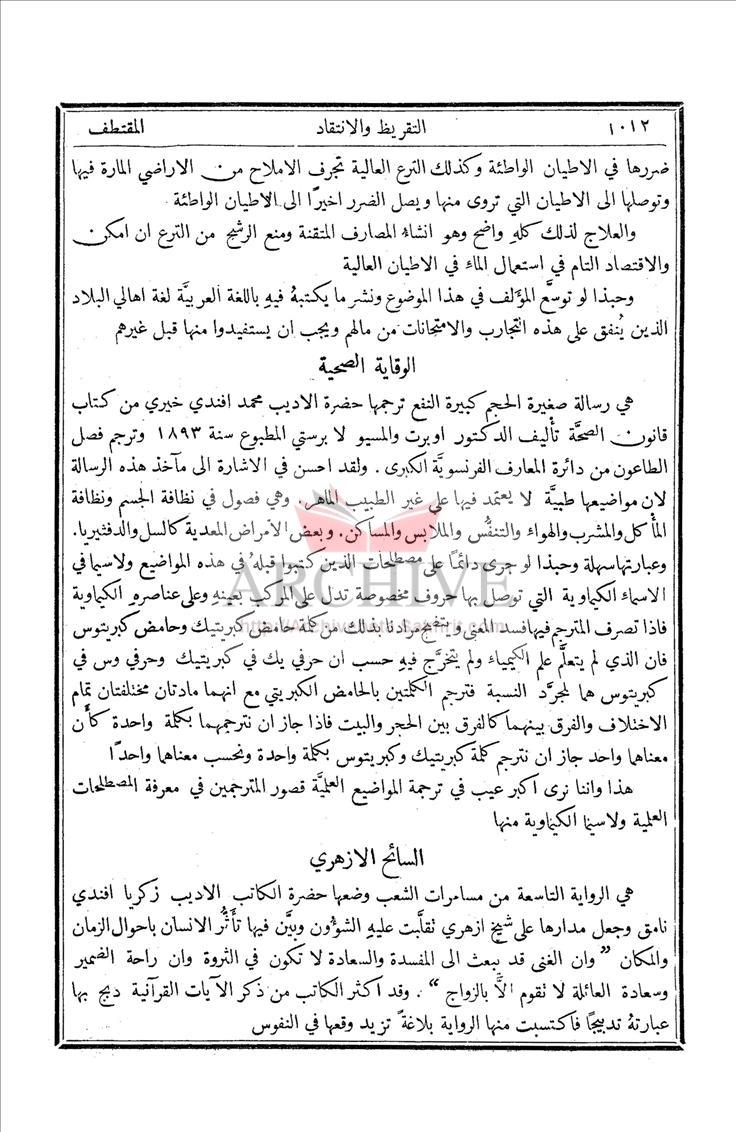 ١٠١٢ التقريظ والانتقاد المقتطف
ضررها في الاطيان الواطئة وكذلك الترع العالية تجرف الاملاح من الاراضي المارة فيها
وتوصلها الى الاطيان التي تروى منها ويصل الضرر اخيرًا الى الاطيان الواطئة
والعلاج لذلك كلهِ واضح وهو انشاءُ المصارف المتقنة ومنع الرشح من الترع ان امكن
والاقتصاد التام في استعمال الماء في الاطيان العالية
وحبذا لو توسَّع المؤلف في هذا الموضوع ونشر ما يكتبهُ فيهِ باللغة العربيَّة لغة اهالي البلاد
الذين يُنفق على هذه التجارب والامتحانات من مالهم ويجب ان يستفيدوا منها قبل غيرهم
الوقاية الصحية
هي رسالة صغيرة الحجم كبيرة النفع ترجمها حضرة الاديب محمد افندي خيري من كتاب
قانون الصحَّة تأليف الدكتور اوبرت والمسيو لا برستي المطبوع سنة ١٨٩٣ وترجم فصل
الطاعون من دائرة المعارف الفرنسويَّة الكبرى . ولقد احسن في الاشارة الى مآخذ هذه الرسالة
لان مواضيعها طبيَّة لا يعتمد فيها على غير الطبيب الماهر . وهي فصول في نظافة الجسم ونظافة
المأكل والمشرب والهواء والتنفُّس والملابس والمساكن . وبعض الامراض المعدية كالسل والدفثيريا .
وعبارتها سهلة وحبذا لو جرى دائمًا على مصطلحات الذين كتبوا قبلهُ في هذه المواضيع ولاسيما في
الاسماء الكيماوية التي توصل بها حروف مخصوصة تدل على المركب بعينهِ وعلى عناصرهِ الكيماوية
فاذا تصرف المترجم فيها فسد المعنى ويتضح مرادنا بذلك من كلمة حامض كبريتيك وحامض كبريتوس
فان الذي لم يتعلَّم علم الكيمياء ولم يتخرَّج فيهِ حسب ان حرفي يك في كبريتيك وحرفي وس في
كبريتوس هما لمجرَّد النسبة فترجم الكلمتين بالحامض الكبريتي مع انهما مادتان مختلفتان تمام
الاختلاف والفرق بينهما كالفرق بين الحجر والبيت فاذا جاز ان نترجمهما بكلمة واحدة كأن
معناهما واحد جاز ان نترجم كلمة كبريتيك وكبريتوس بكلمة واحدة ونحسب معناهما واحدًا
هذا واننا نرى اكبر عيب في ترجمة المواضيع العلميَّة قصور المترجمين في معرفة المصطلحات
العلمية ولاسيما الكيماوية منها
السائح الازهري
هي الرواية التاسعة من مسامرات الشعب وضعها حضرة الكاتب الاديب زكريا افندي
نامق وجعل مدارها على شيخ ازهري تقلَّبت عليهِ الشؤون وبيَّن فيها تأثُّر الانسان باحوال الزمان
والمكان " وان الغنى قد يبعث الى المفسدة والسعادة لا تكون في الثروة وان راحة الضمير
وسعادة العائلة لا تقوم الاَّ بالزواج " . وقد اكثر الكاتب من ذكر الآيات القرآنية دبج بها
عبارتهُ تدبيجًا فاكتسبت منها الرواية بلاغةً تزيد وقعها في النفوس
ARCHIVE